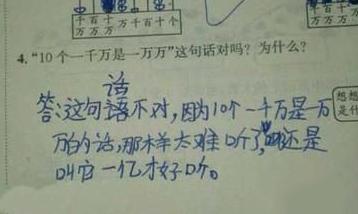 千百十万千百十个
万万万
千百十
万万万
4. “10个一千万是一万万”这句话对吗？为什么？
话
答：这句语不对，因为10个一千万是一万
万的话，那样太难听了，还是
叫它一亿才好听。
想想
是什